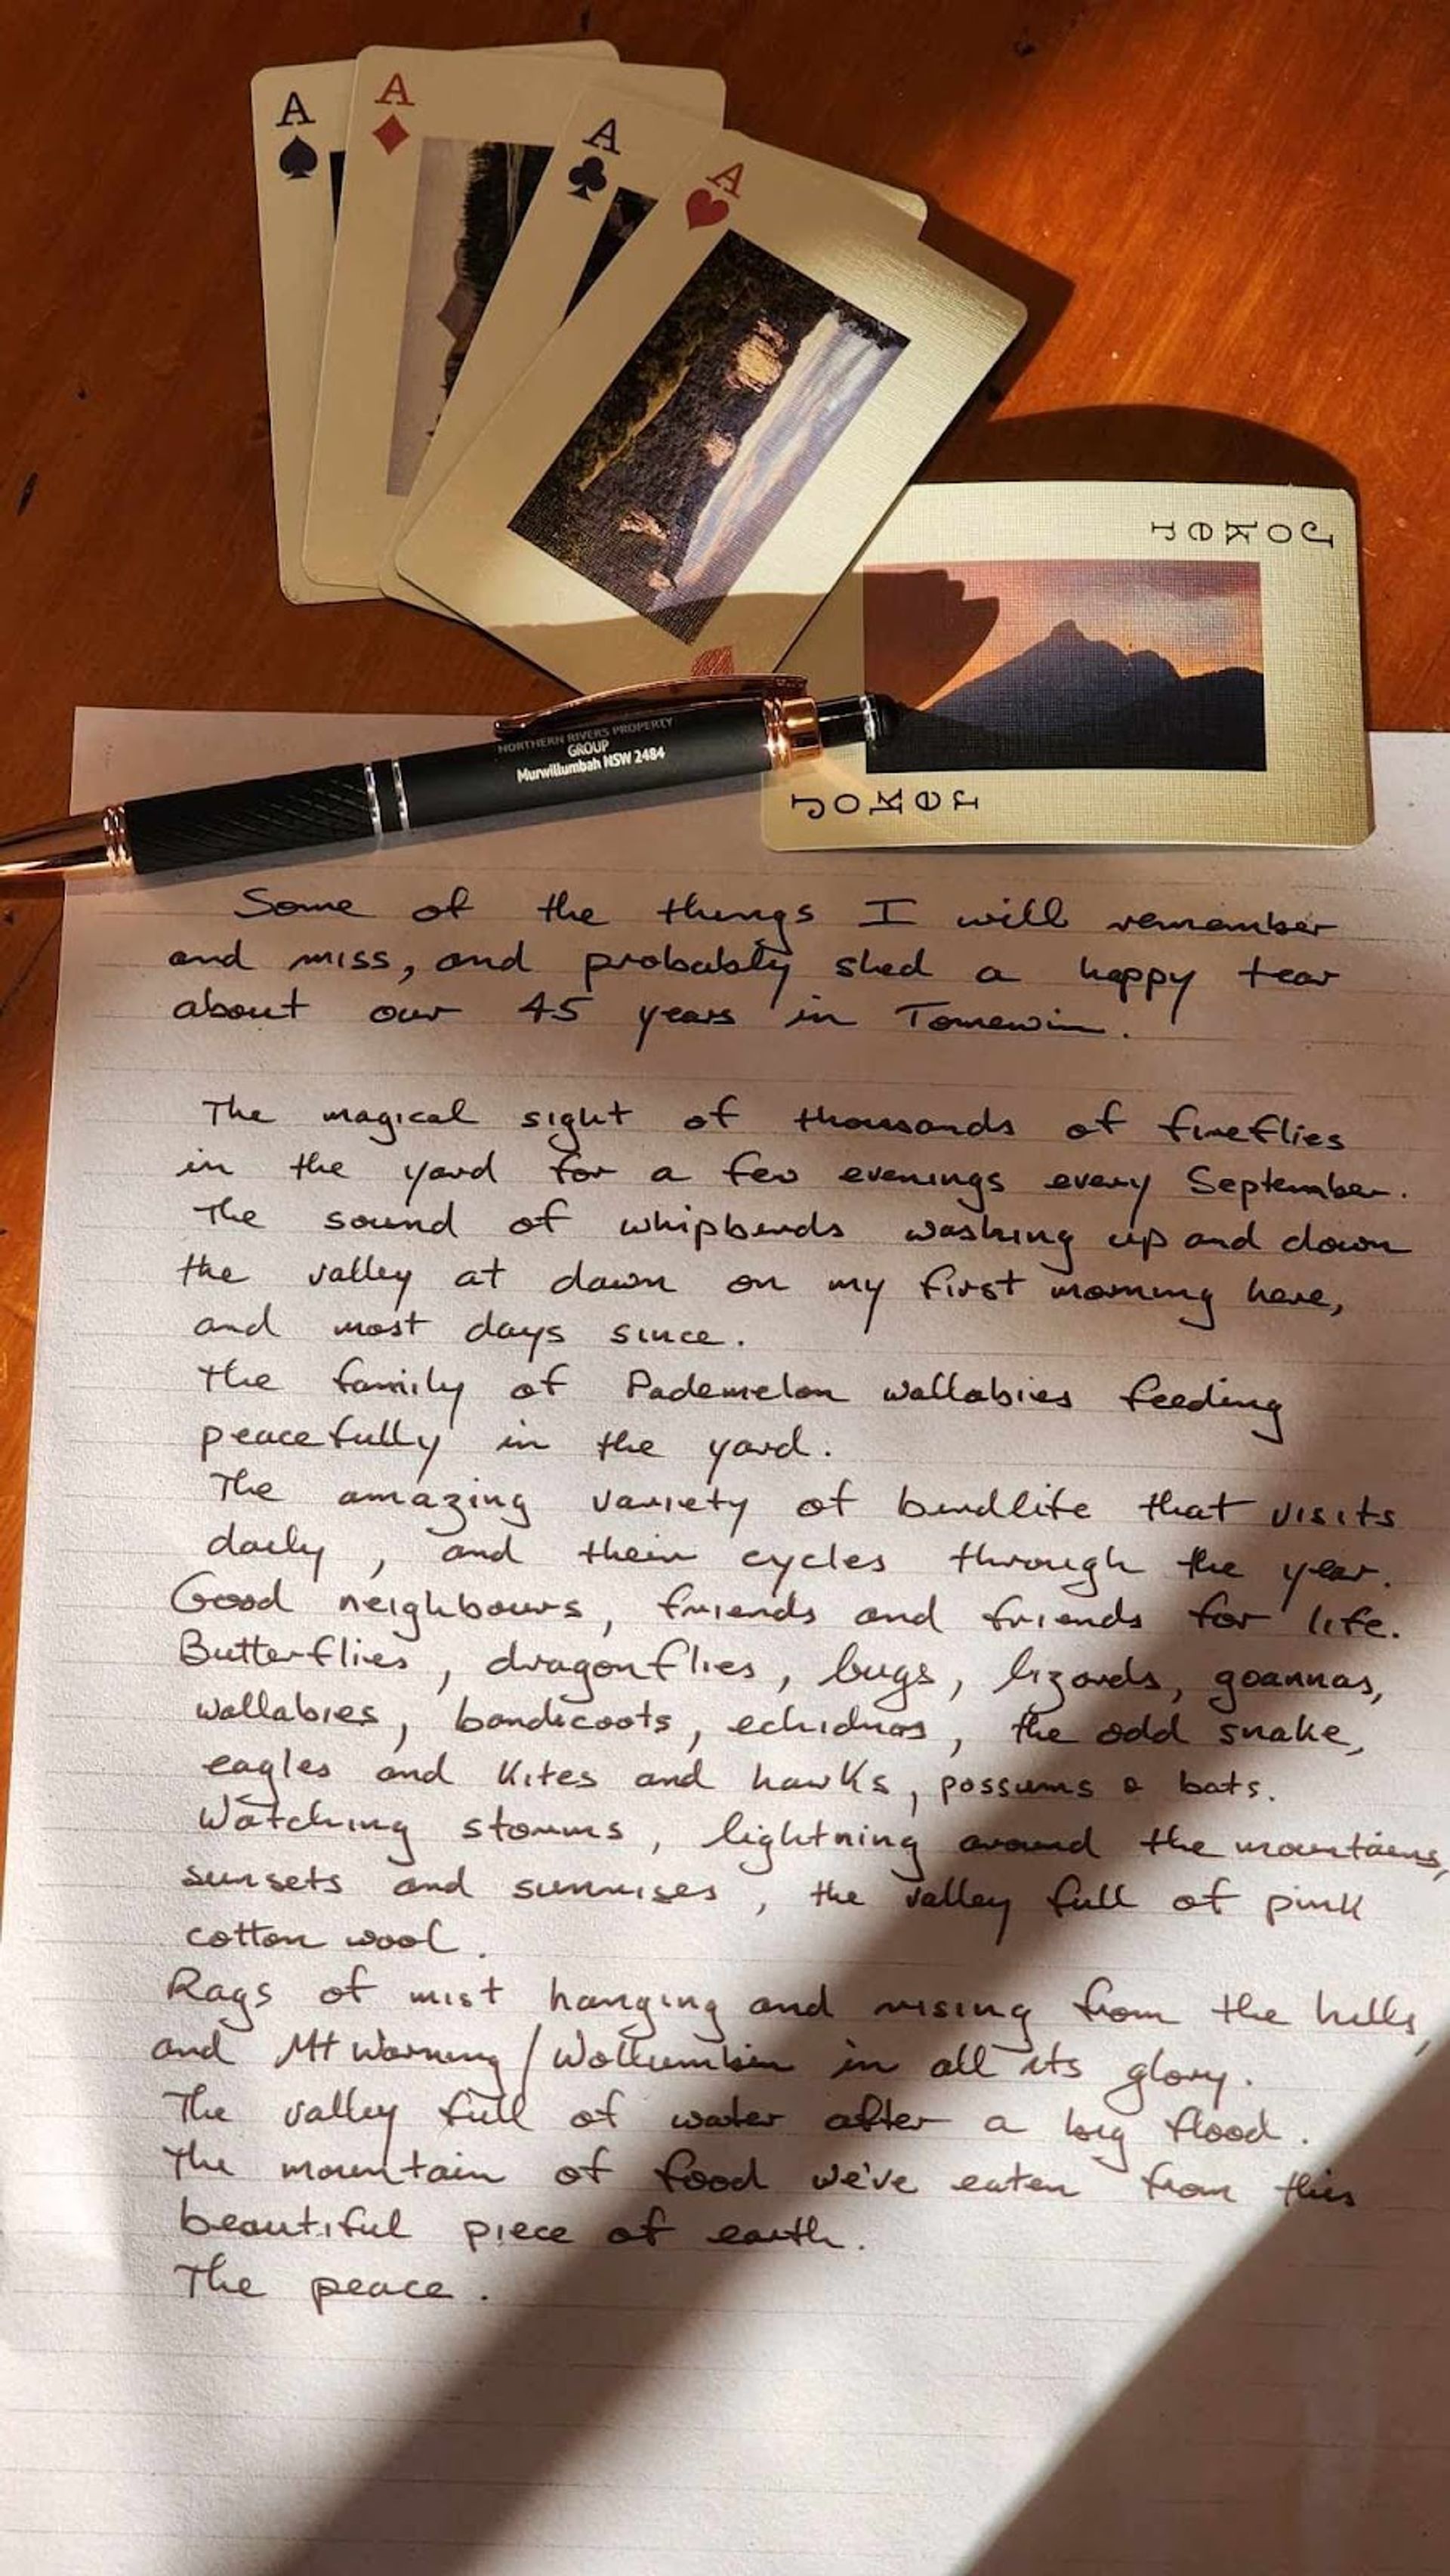 A
A
A
A
Joker
NORTHERN RIVERS PROPERTY
GROUP
Murwillumbah NSW 2484
Joker
Some of the things I will remember
and miss, and probably shed a happy tear
about our 45 years in Tomewin.
The magical sight of thousands of fireflies
in the yard for a few evenings every September.
The sound of whipbirds washing up and down
the valley at dawn on my first morning here,
and most days since.
The family of Pademelon wallabies feeding
peacefully in the yard.
The amazing variety of birdlife that visits
daily, and their cycles through the year.
Good neighbours, friends and friends for life.
Butterflies, dragonflies, bugs, lizards, goannas,
wallabies, bandicoots, echidnas, the odd snake,
eagles and kites and hawks, possums & bats.
Watching storms, lightning around the mountains,
sunsets and sunrises, the valley full of pink
cotton wool.
Rags of mist hanging and rising from the hills,
and Mt Warning/Wollumbin in all its glory.
The valley full of water after a big flood.
The mountain of food we've eaten from this
beautiful piece of earth.
The peace.